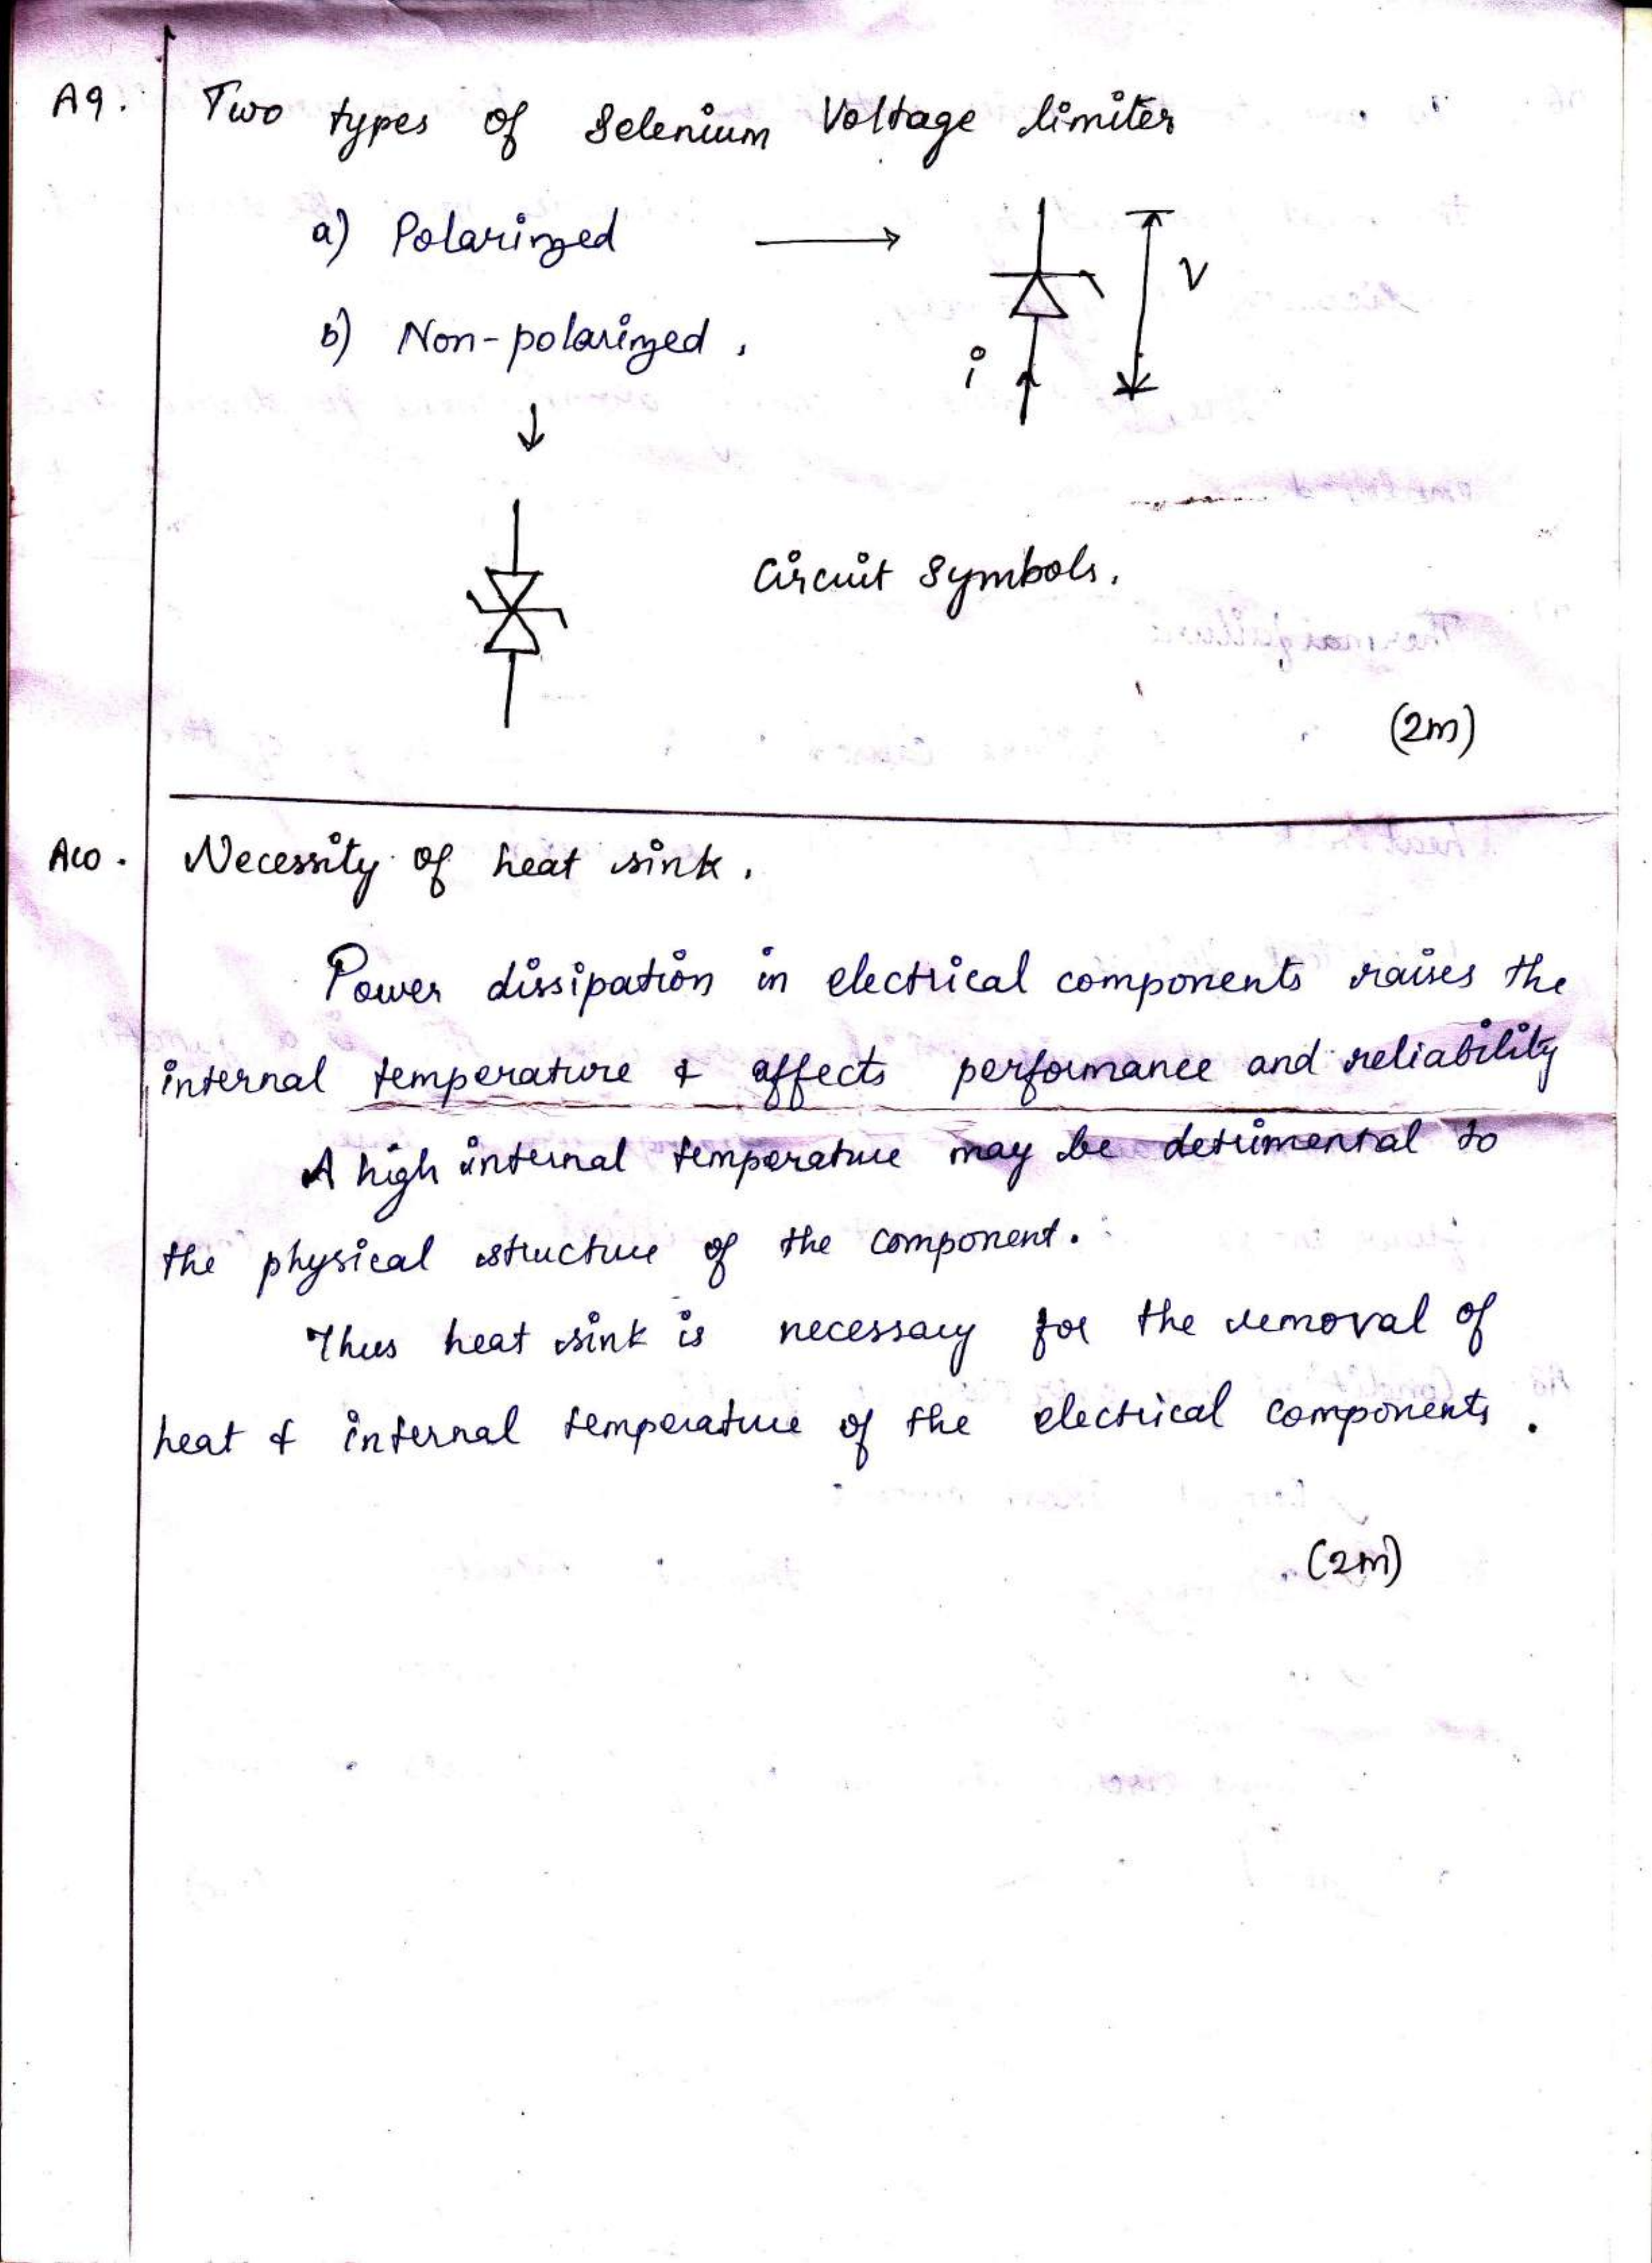 A9. Two types of Selenium Voltage limiter
a) Polarized
V
b) Non-polarized.
i
Circuit Symbols.
(2m)
A10. Necessity of heat sink.
Power dissipation in electrical components raises the
internal temperature & affects performance and reliability
A high internal temperature may be detrimental to
the physical structure of the component.
Thus heat sink is necessary for the removal of
heat & internal temperature of the electrical components.
(2m)